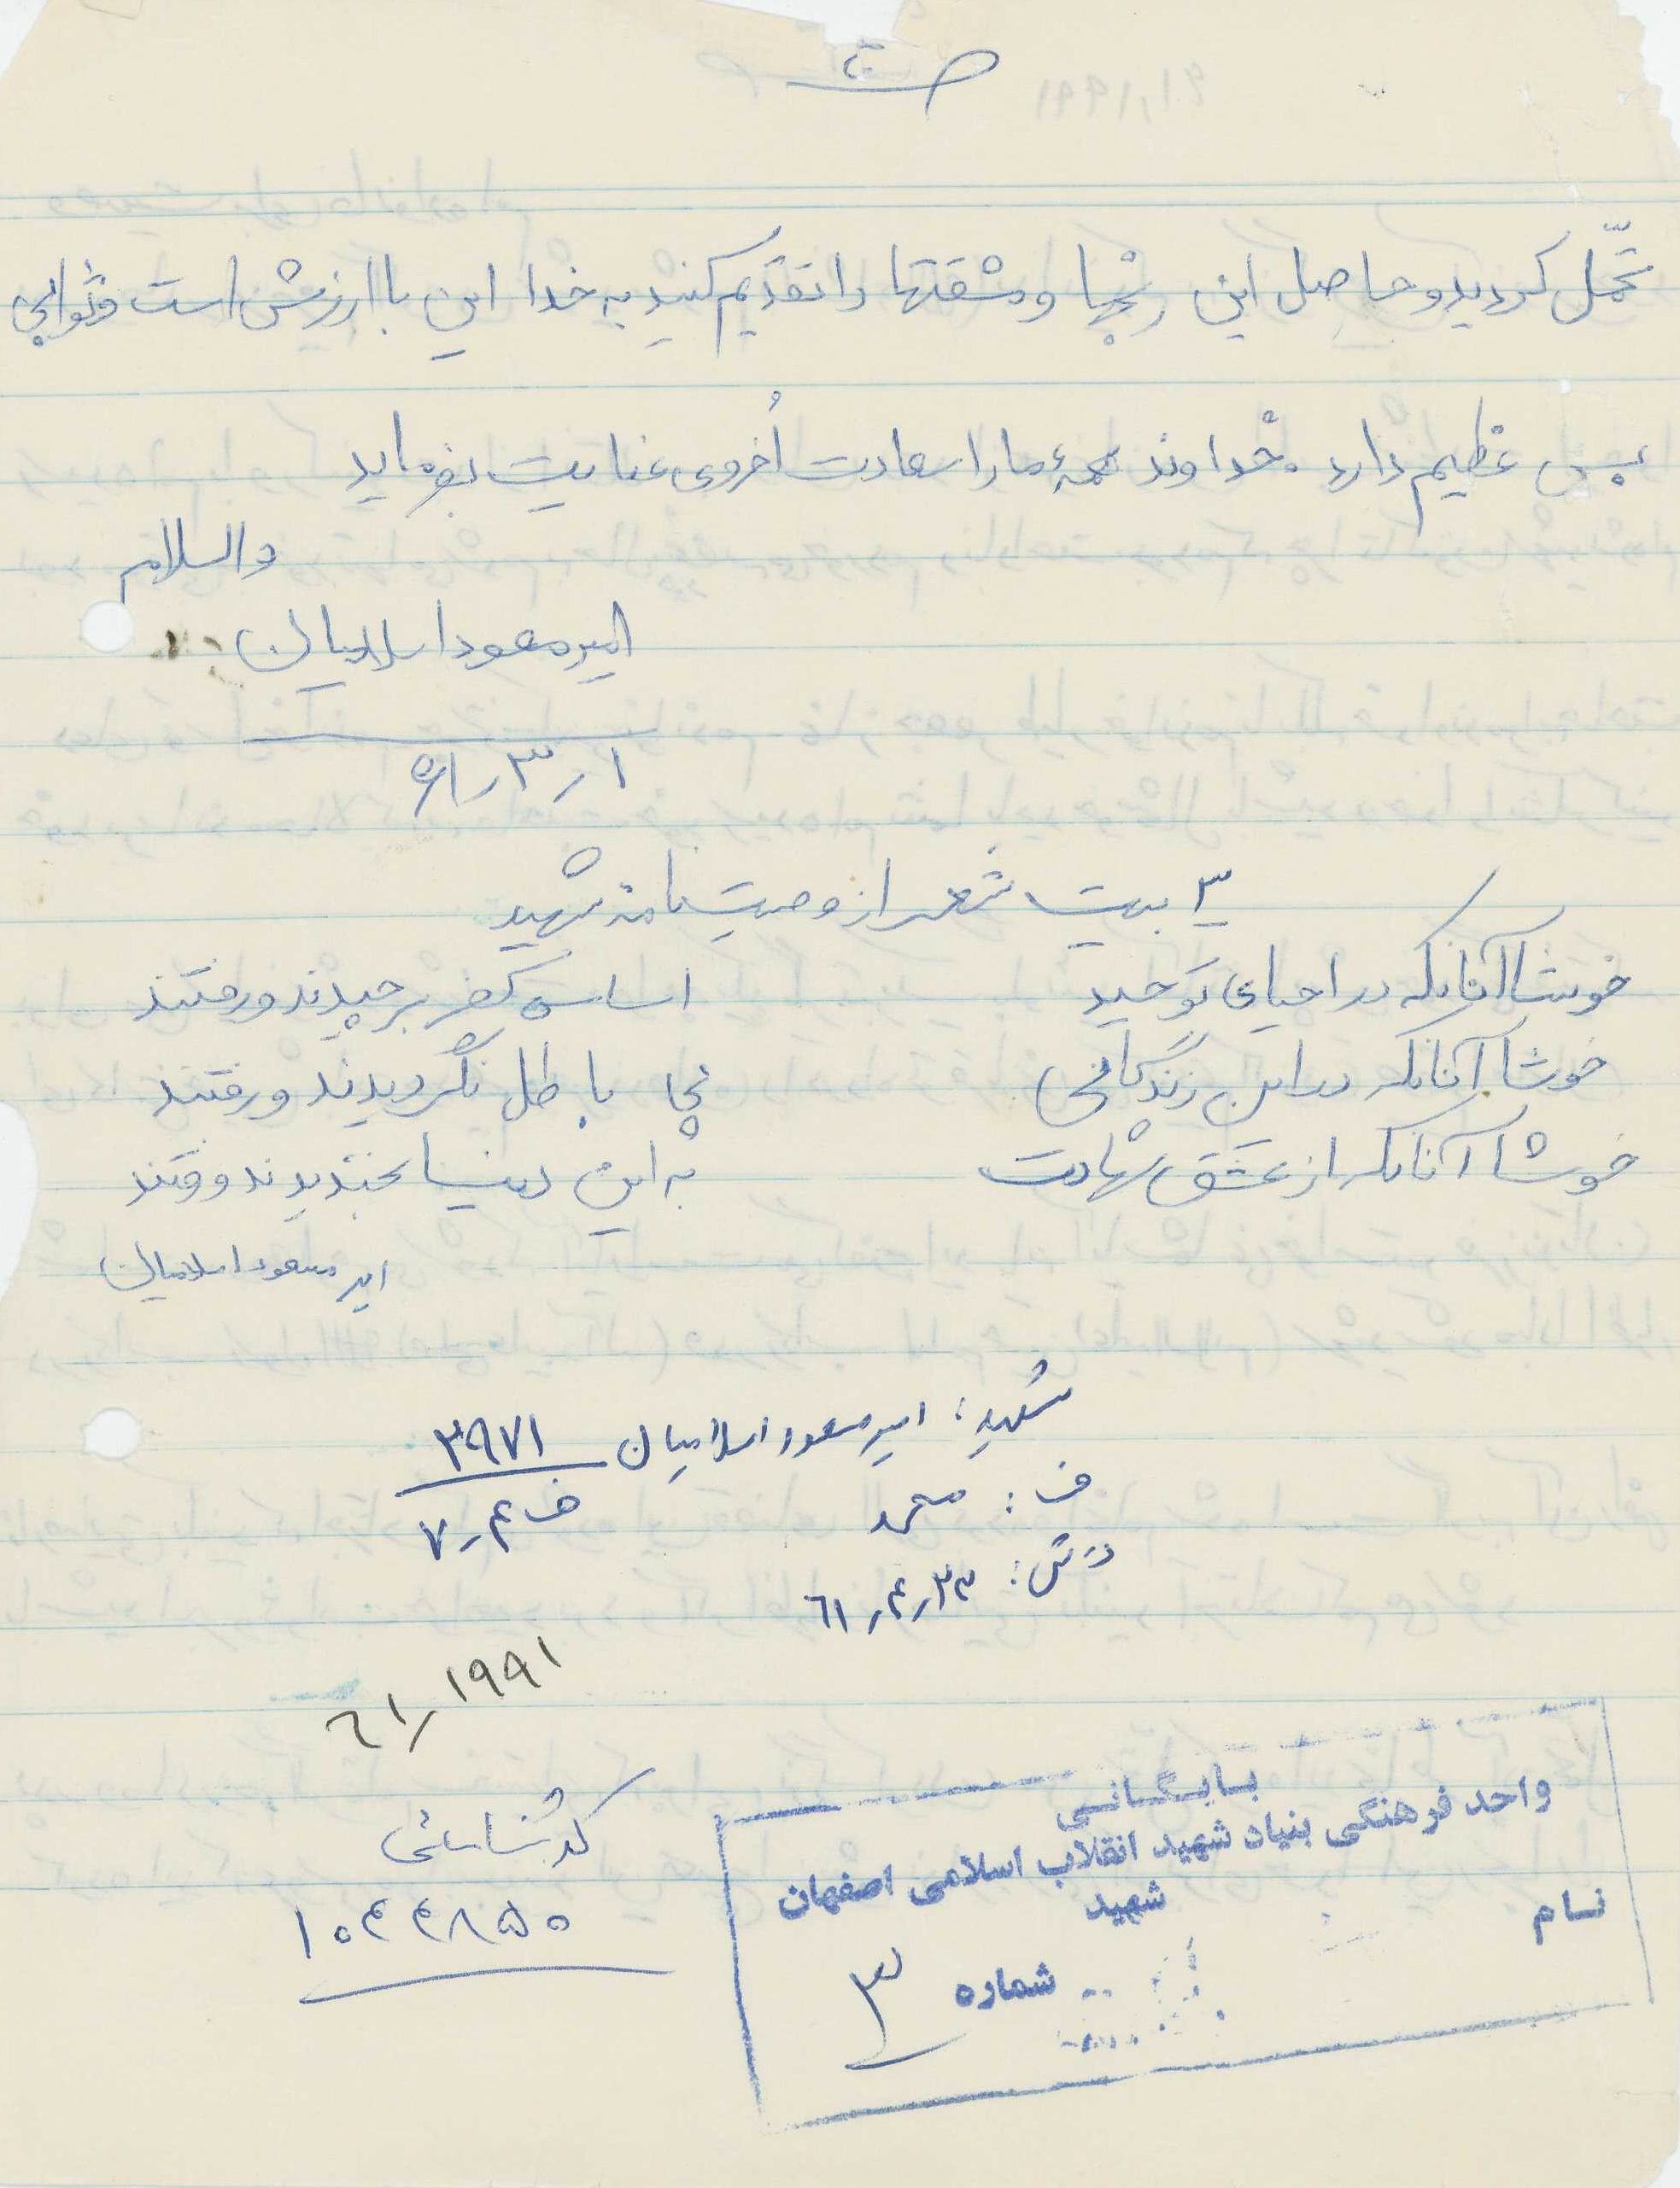 تحمّل کردید و حاصل این رنجها و مشقتها را تقدیم کنید به خدا این با ارزش است و ثوابی
بس عظیم دارد. خداوند همهٔ ما را سعادت اُخروی عنایت بفرماید
والسلام
امیرمسعود اسلامیان
۶۱٫۳٫۱
۳ بیت شعر از وصیت نامه شهید
خوشا آنانکه در احیای توحید اساس کفر برچیدند و رفتند
خوشا آنانکه در این زندگانی پی باطل نگردیدند و رفتند
خوشا آنانکه از عشق شهادت به این دنیا بخندیدند و رفتند
امیرمسعود اسلامیان
شهید: امیرمسعود اسلامیان ۳۹۷۱
ف: محمد ف ۴٫۷
ت ش: ۶۱٫۴٫۲۳
۶۱٫۱۹۹۱
کد شناسائی
۱۰۴۴۸۵۰
بایگانی
واحد فرهنگی بنیاد شهید انقلاب اسلامی اصفهان
نام شهید
شماره ۳